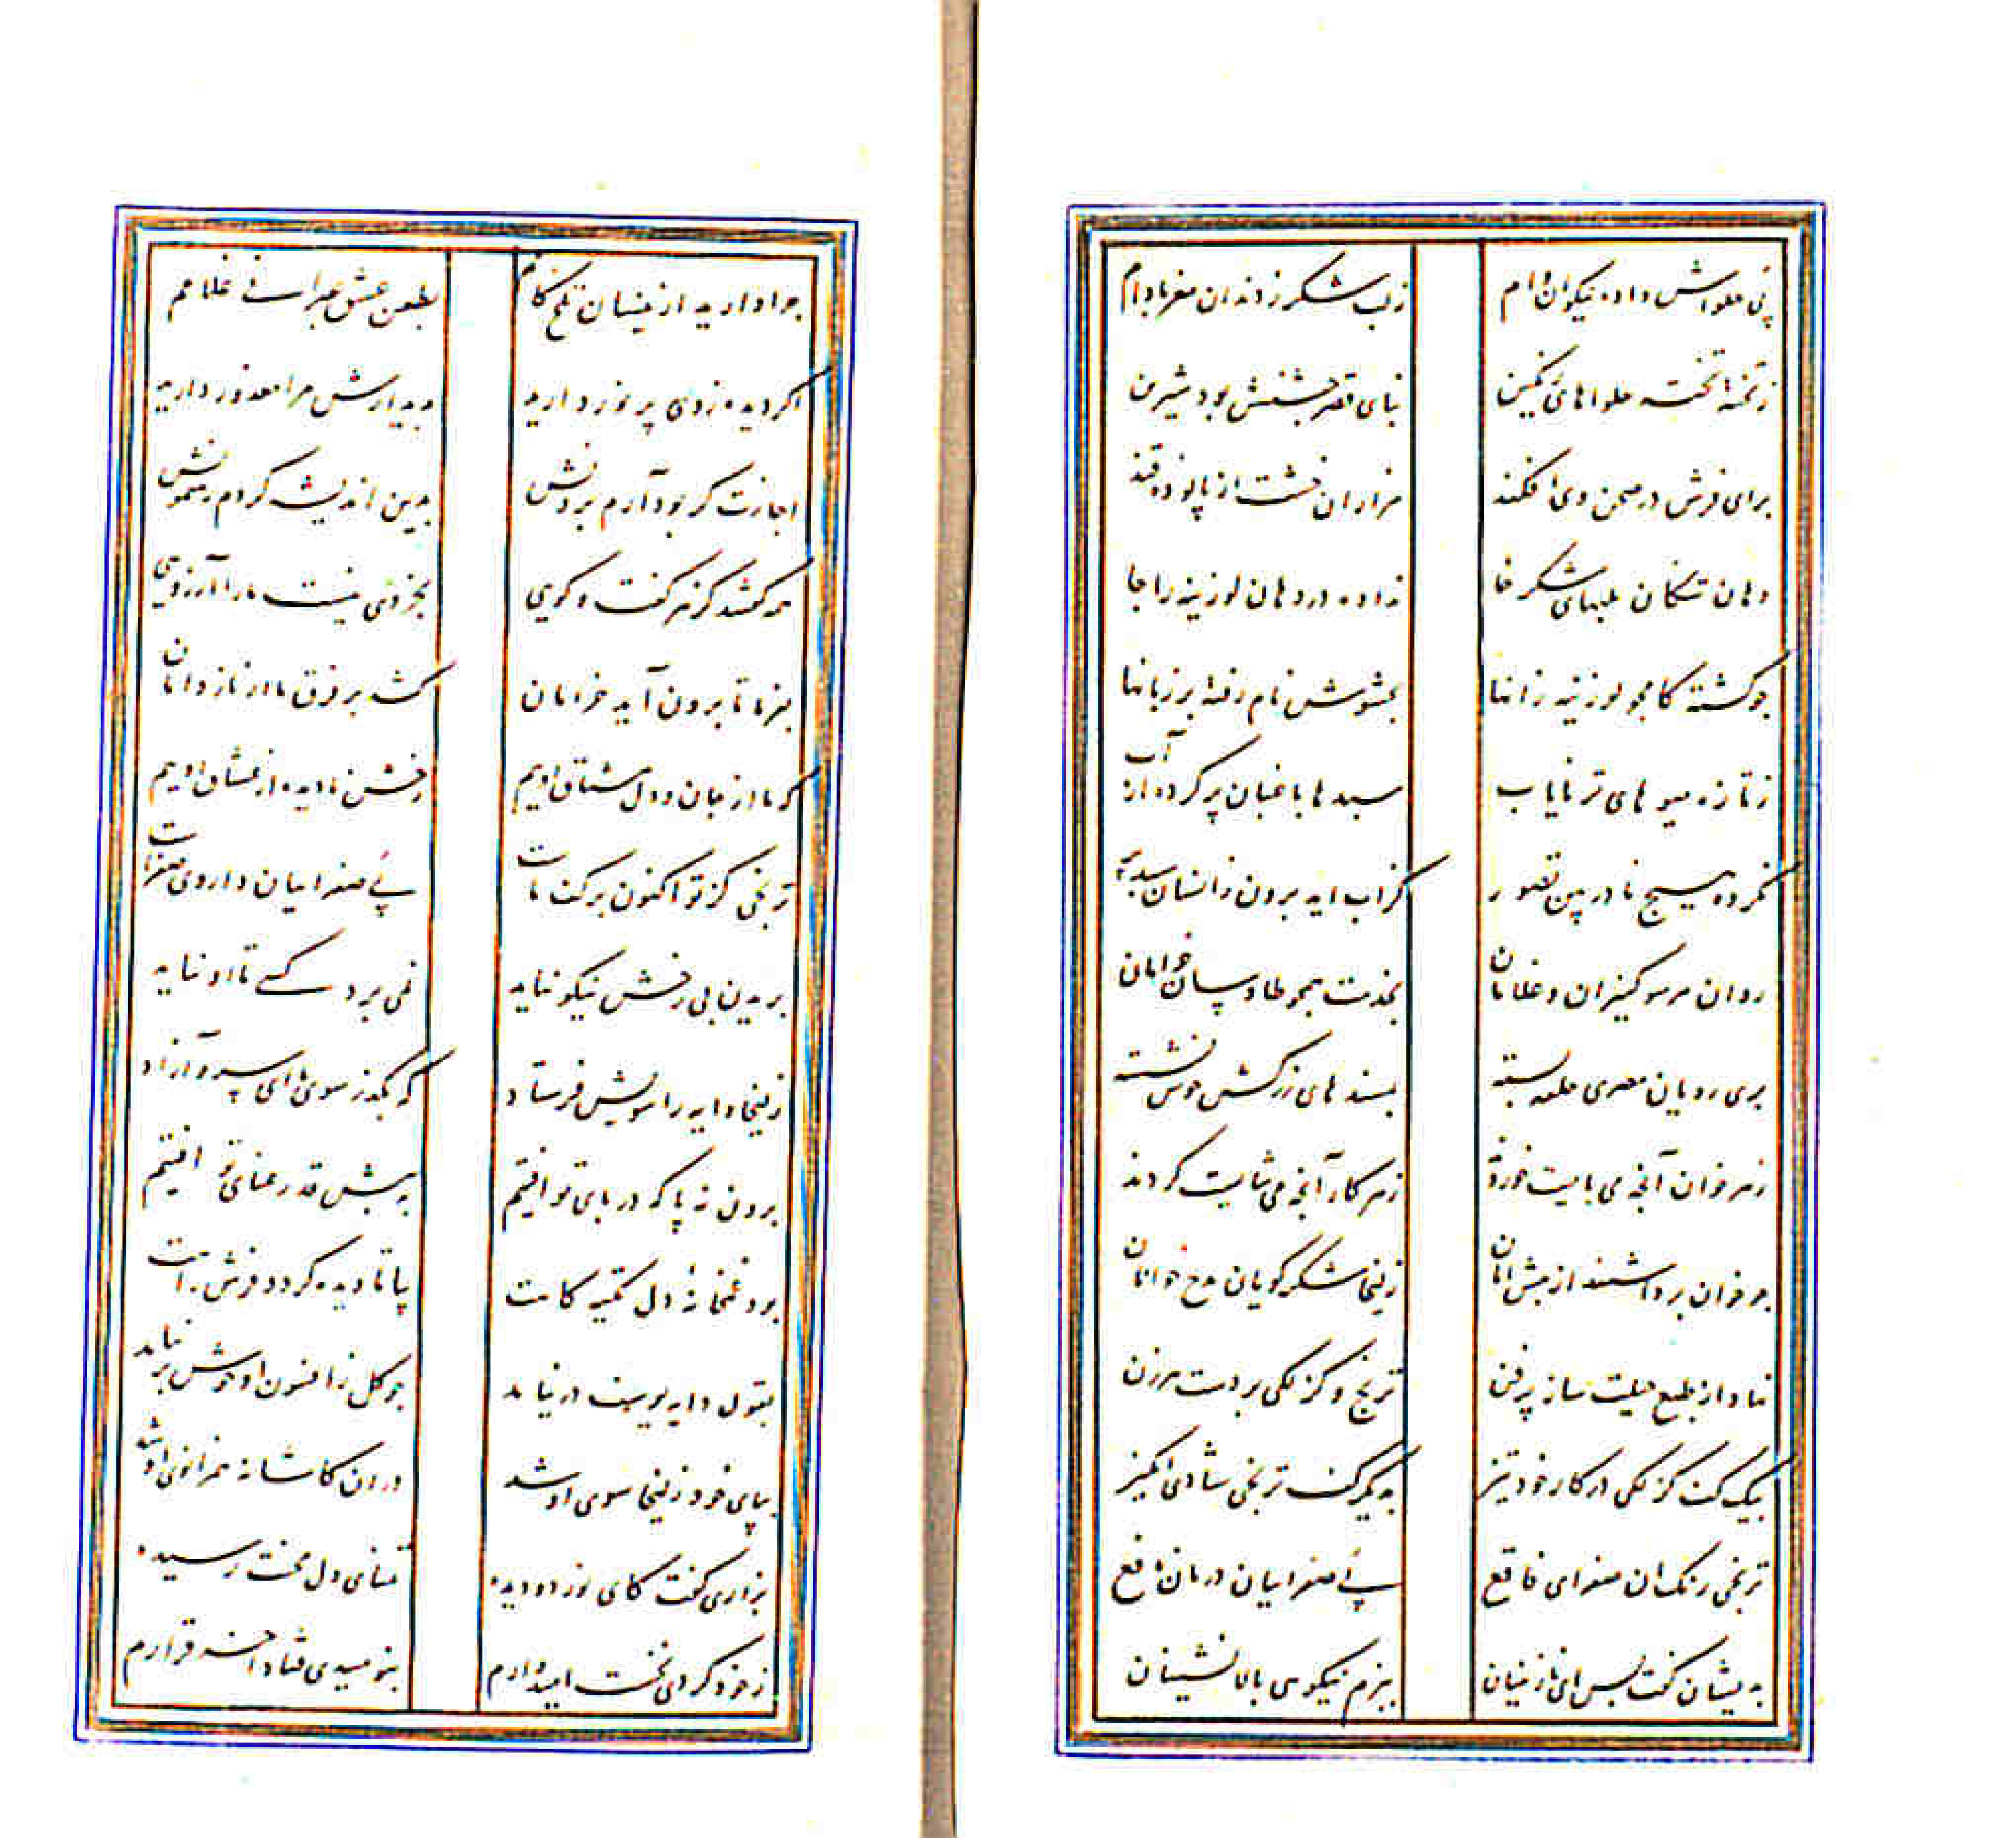 پی حلواش داده نیکوان وام
ز لب شکر ز دندان مغز بادام
ز تخته تخته حلواهای رنگین
بنای قصر جشنش بود شیرین
برای فرش در صحن وی افکند
هزاران خشت از پالوده قند
دهان تنگان بلبهای شکرخا
نداده در دهان لوزینه را جا
چو گشته کامجو لوزینه زانها
بحشوش نام رفته بر زبانها
ز تازه میوهای تر نایاب
سبدها باغبان پر کرده از آب
نکرده هیچ نادربین تصور
کز آب آید برون زانسان سبد پر
روان هر سو کنیزان و غلامان
بخدمت همچو طاوسان خرامان
پری رویان مصری حلقه بسته
بمسندهای زرکش خوش نشسته
ز هر خوان آنچه می بایست خوردند
ز هر کار آنچه می شایست کردند
چو خوان برداشتند از پیش آنان
زلیخا شکر گویان مدح خوانان
نهاد از طبع حیلت ساز پرفن
ترنج و گزلکی بر دست هر زن
بیک کف گزلکی در کار خود تیز
بدیگر کف ترنجی شادی انگیز
ترنجی رنگ آن صفرای فاقع
پی صفراییان درمان نافع
بدیشان گفت پس ای نازنینان
ببزم نیکویی بالانشینان
چرا دارید ازینسان تلخ کام
بطعن عشق عبرانی غلامم
اگر دیده ز وی پر نور دارید
بدیدارش مرا معذور دارید
اجازت گر بود آرم برونش
بدین اندیشه گردم رهنمونش
همه گفتند کز هر گفت و گویی
بجز وی نیست ما را آرزویی
بفرما تا برون آید خرامان
کشد بر فرق ما از ناز دامان
که ما از جان و دل مشتاق اوییم
رخش نادیده از عشاق اوییم
ترنجی کز تو اکنون بر کف ماست
پی صفراییان داروی صفراست
بریدن بی رخش نیکو نیاید
نمی برد کسی تا او نیاید
زلیخا دایه را سویش فرستاد
که بگذر سوی ما ای سرو آزاد
برون نه پا که در پای تو افتیم
به پیش قد رعنای تو افتیم
بود غمخانه دل تکیه گاهت
بیا تا دیده گردد فرش راهت
بقول دایه یوسف در نیامد
چو گل ز افسون او خوش بر نیامد
بپای خود زلیخا سوی او شد
در آن کاشانه همزانوی او شد
بزاری گفت کای نور دو دیده
تمنای دل محنت رسیده
ز خود کردی نخست امیدوارم
بنومیدی فتاد آخر قرارم